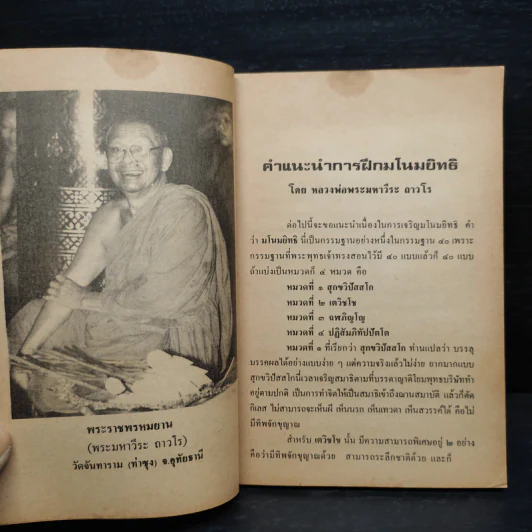 พระราชพรหมยาน
(พระมหาวีระ ถาวโร)
วัดจันทาราม (ท่าซุง) จ.อุทัยธานี
คำแนะนำการฝึกมโนมยิทธิ
โดย หลวงพ่อพระมหาวีระ ถาวโร
ต่อไปนี้จะขอแนะนำเนื่องในการเจริญมโนมยิทธิ คำ
ว่า มโนมยิทธิ นี่เป็นกรรมฐานอย่างหนึ่งในกรรมฐาน ๔๐ เพราะ
กรรมฐานที่พระพุทธเจ้าทรงสอนไว้มี ๔๐ แบบแล้วก็ ๔๐ แบบ
ถ้าแบ่งเป็นหมวดก็ ๔ หมวด คือ
หมวดที่ ๑ สุกขวิปัสสโก
หมวดที่ ๒ เตวิชโช
หมวดที่ ๓ ฉฬภิญโญ
หมวดที่ ๔ ปฏิสัมภิทัปปัตโต
หมวดที่ ๑ ที่เรียกว่า สุกขวิปัสสโก ท่านแปลว่า บรรลุ
มรรคผลได้อย่างแบบง่าย ๆ แต่ความจริงแล้วไม่ง่าย ยากมากแบบ
สุกขวิปัสสโกนี่เวลาเจริญสมาธิตามที่บรรดาญาติโยมพุทธบริษัททำ
อยู่ตามปกติ เป็นการทำจิตให้เป็นสมาธิเข้าถึงฌานสมาบัติ แล้วก็ตัด
กิเลส ไม่สามารถจะเห็นผี เห็นนรก เห็นเทวดา เห็นสวรรค์ได้ คือไม่
มีทิพจักขุญาณ
สำหรับ เตวิชโช นั้น มีความสามารถพิเศษอยู่ ๒ อย่าง
คือว่ามีทิพจักขุญาณด้วย สามารถระลึกชาติด้วย และก็